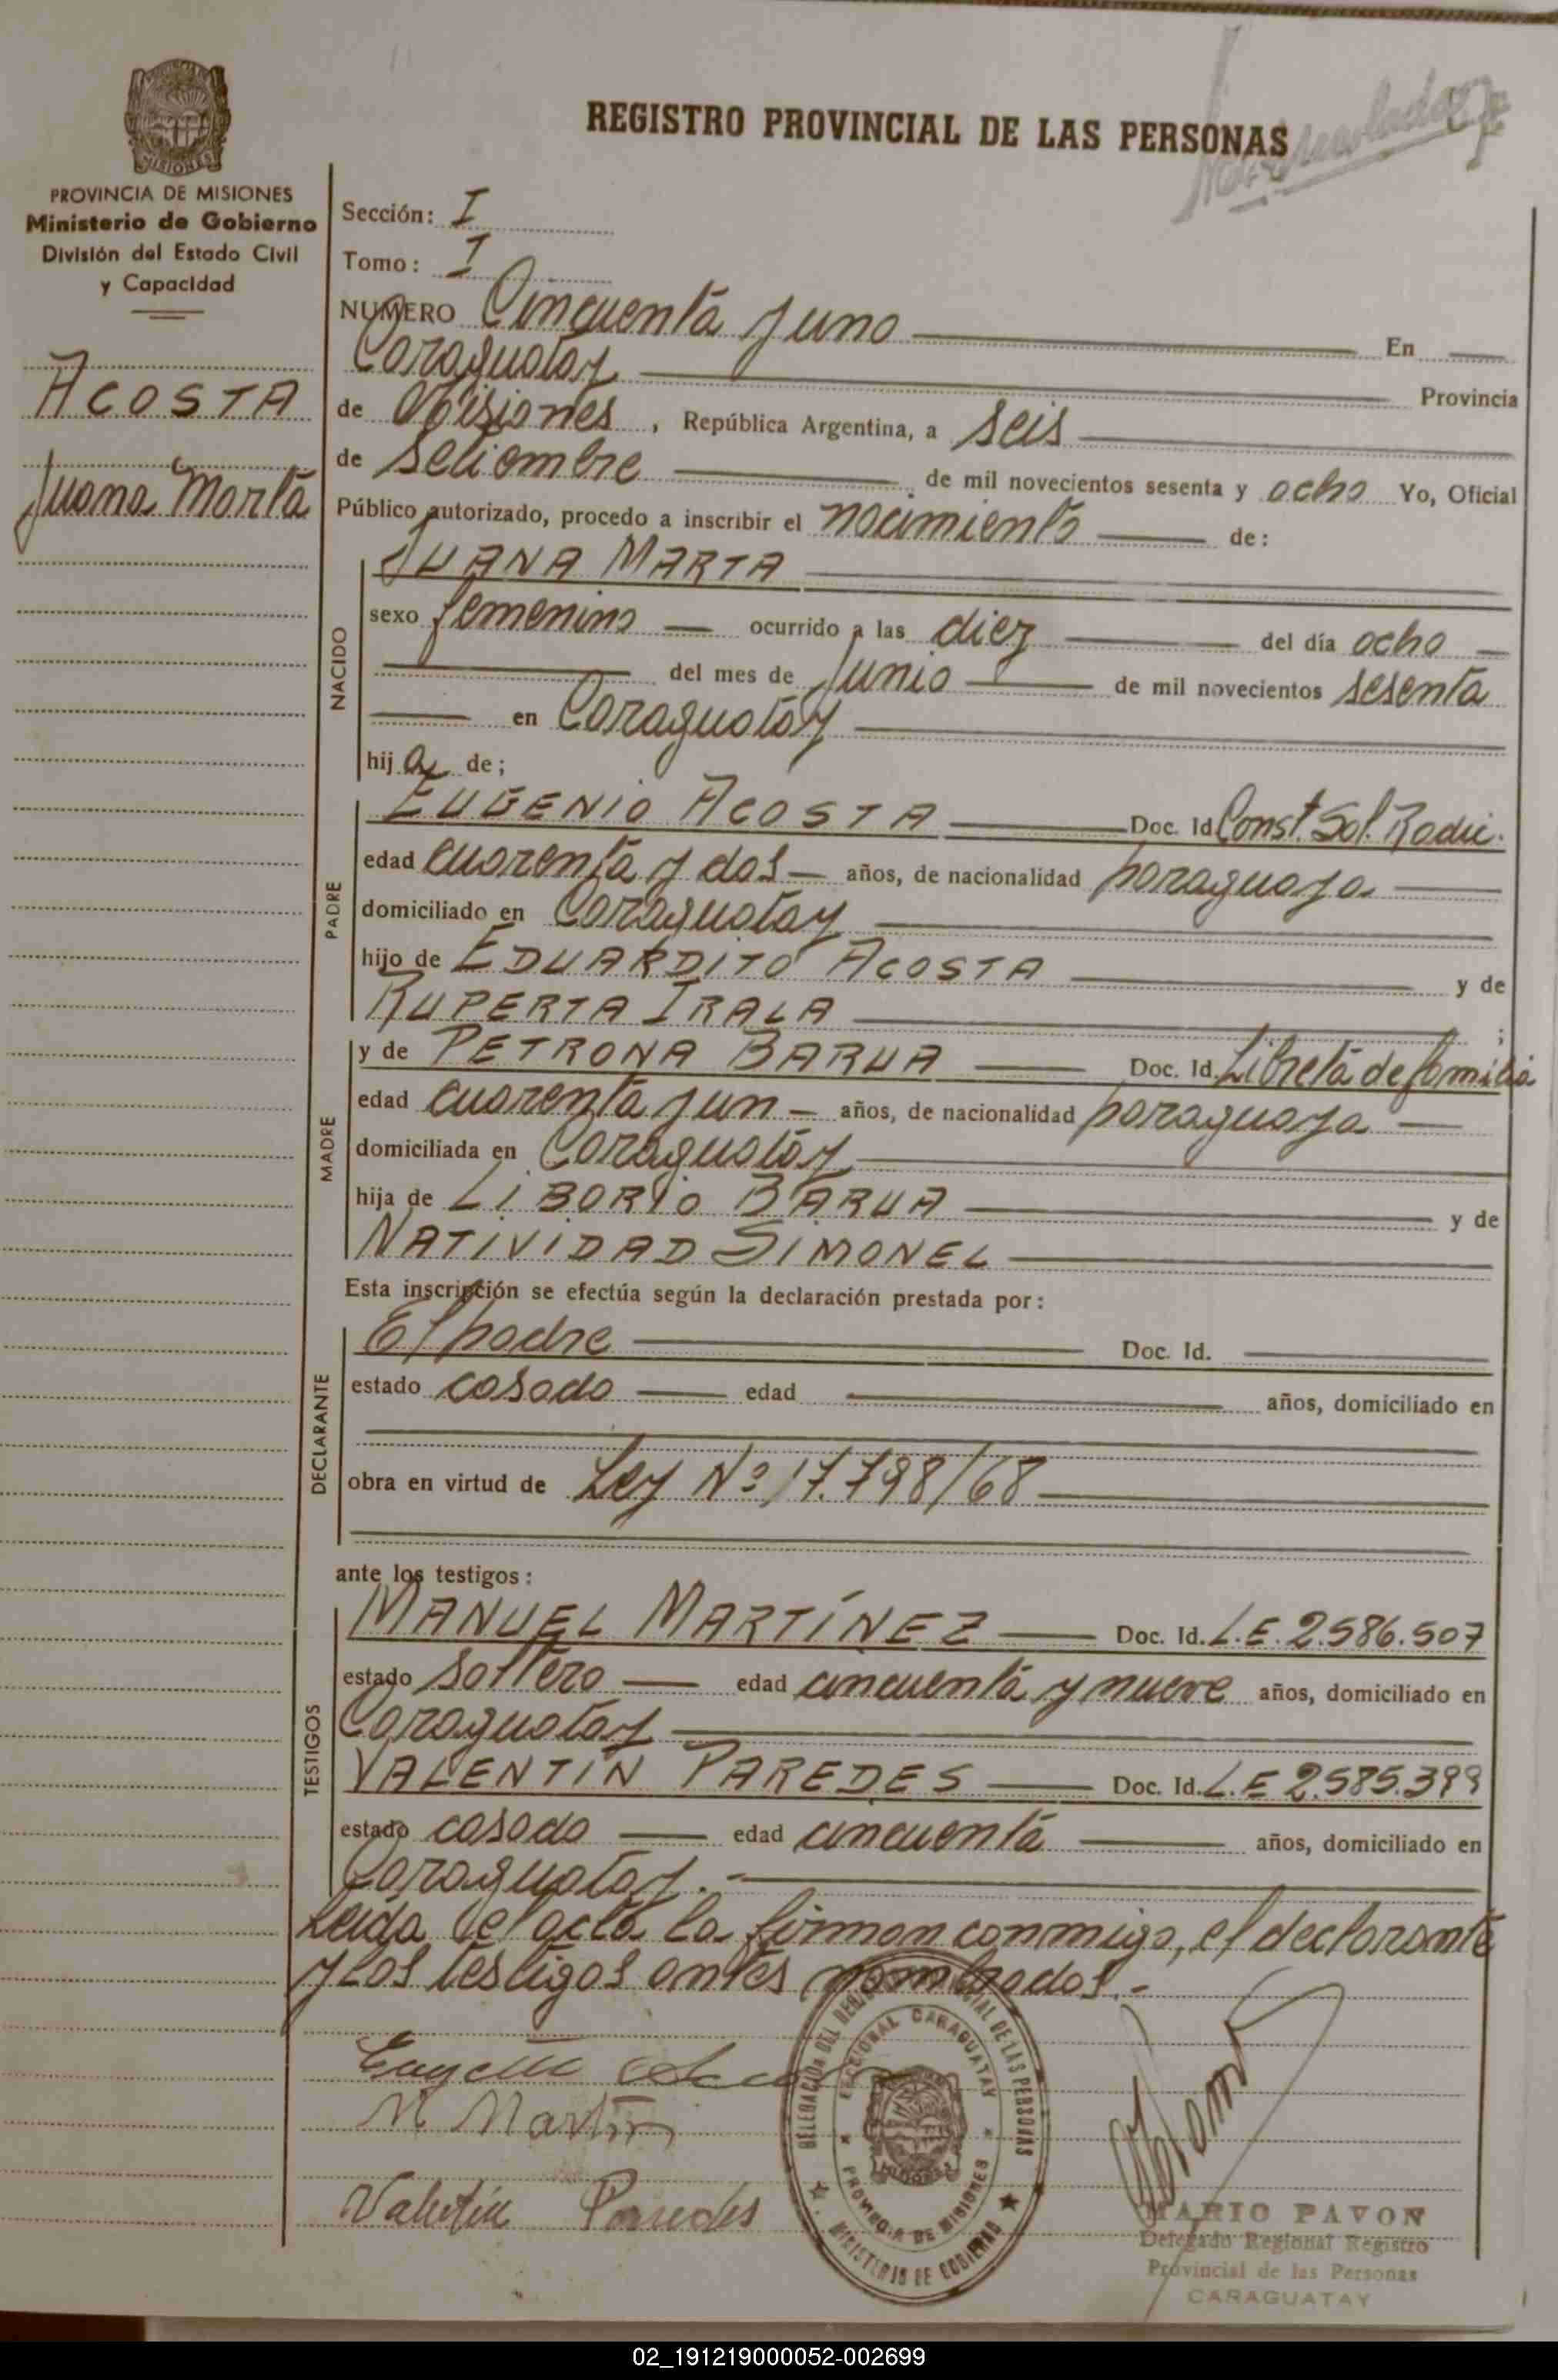 REGISTRO PROVINCIAL DE LAS PERSONAS
MISIONES
PROVINCIA DE MISIONES
Ministerio de Gobierno
División del Estado Civil
y Capacidad
ACOSTA
Juana Marta
Sección: I
Tomo: I
NUMERO Cincuenta y uno En
Caraguatay Provincia
de Misiones, República Argentina, a seis
de setiembre de mil novecientos sesenta y ocho Yo, Oficial
Público autorizado, procedo a inscribir el nacimiento de:
NACIDO
JUANA MARTA
sexo femenino ocurrido a las diez del día ocho
del mes de Junio de mil novecientos sesenta
en Caraguatay
hija de;
PADRE
EUGENIO ACOSTA Doc. Id Const. Sol. Radic.
edad cuarenta y dos años, de nacionalidad paraguaya
domiciliado en Caraguatay
hijo de EDUARDITO ACOSTA y de
RUPERTA IRALA ;
MADRE
y de PETRONA BARUA Doc. Id. Libreta de familia
edad cuarenta y un años, de nacionalidad paraguaya
domiciliada en Caraguatay
hija de LIBORIO BARUA y de
NATIVIDAD SIMONEL
Esta inscripción se efectúa según la declaración prestada por:
DECLARANTE
El padre Doc. Id.
estado casado edad años, domiciliado en
obra en virtud de Ley Nº 17.798/68
ante los testigos:
TESTIGOS
MANUEL MARTÍNEZ Doc. Id. L.E. 2.586.507
estado soltero edad cincuenta y nueve años, domiciliado en
Caraguatay
VALENTÍN PAREDES Doc. Id. L.E 2.585.399
estado casado edad cincuenta años, domiciliado en
Caraguatay.-
Leida el acta la firman conmigo, el declarante
y los testigos antes nombrados.-
M Martin
Valentin Paredes
DELEGACION DEL REGISTRO PROVINCIAL DE LAS PERSONAS
SECCIONAL CARAGUATAY
PROVINCIA DE MISIONES
MINISTERIO DE GOBIERNO
MARIO PAVON
Delegado Regional Registro
Provincial de las Personas
CARAGUATAY
02_191219000052-002699